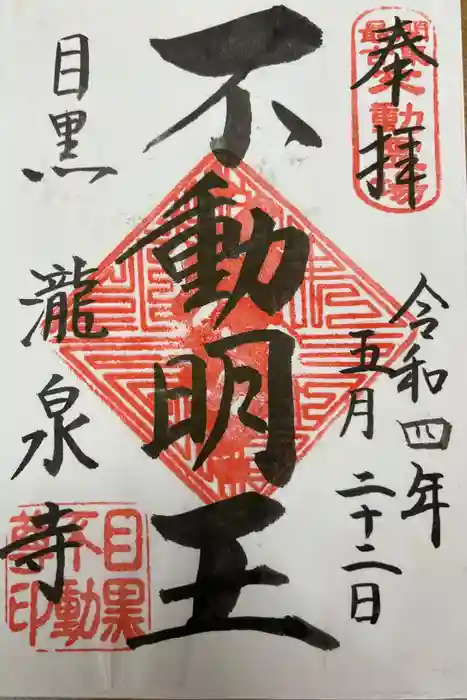 奉拝
令和四年
五月二十二日
不動明王
目黒
瀧泉寺
目黒
不動
尊印